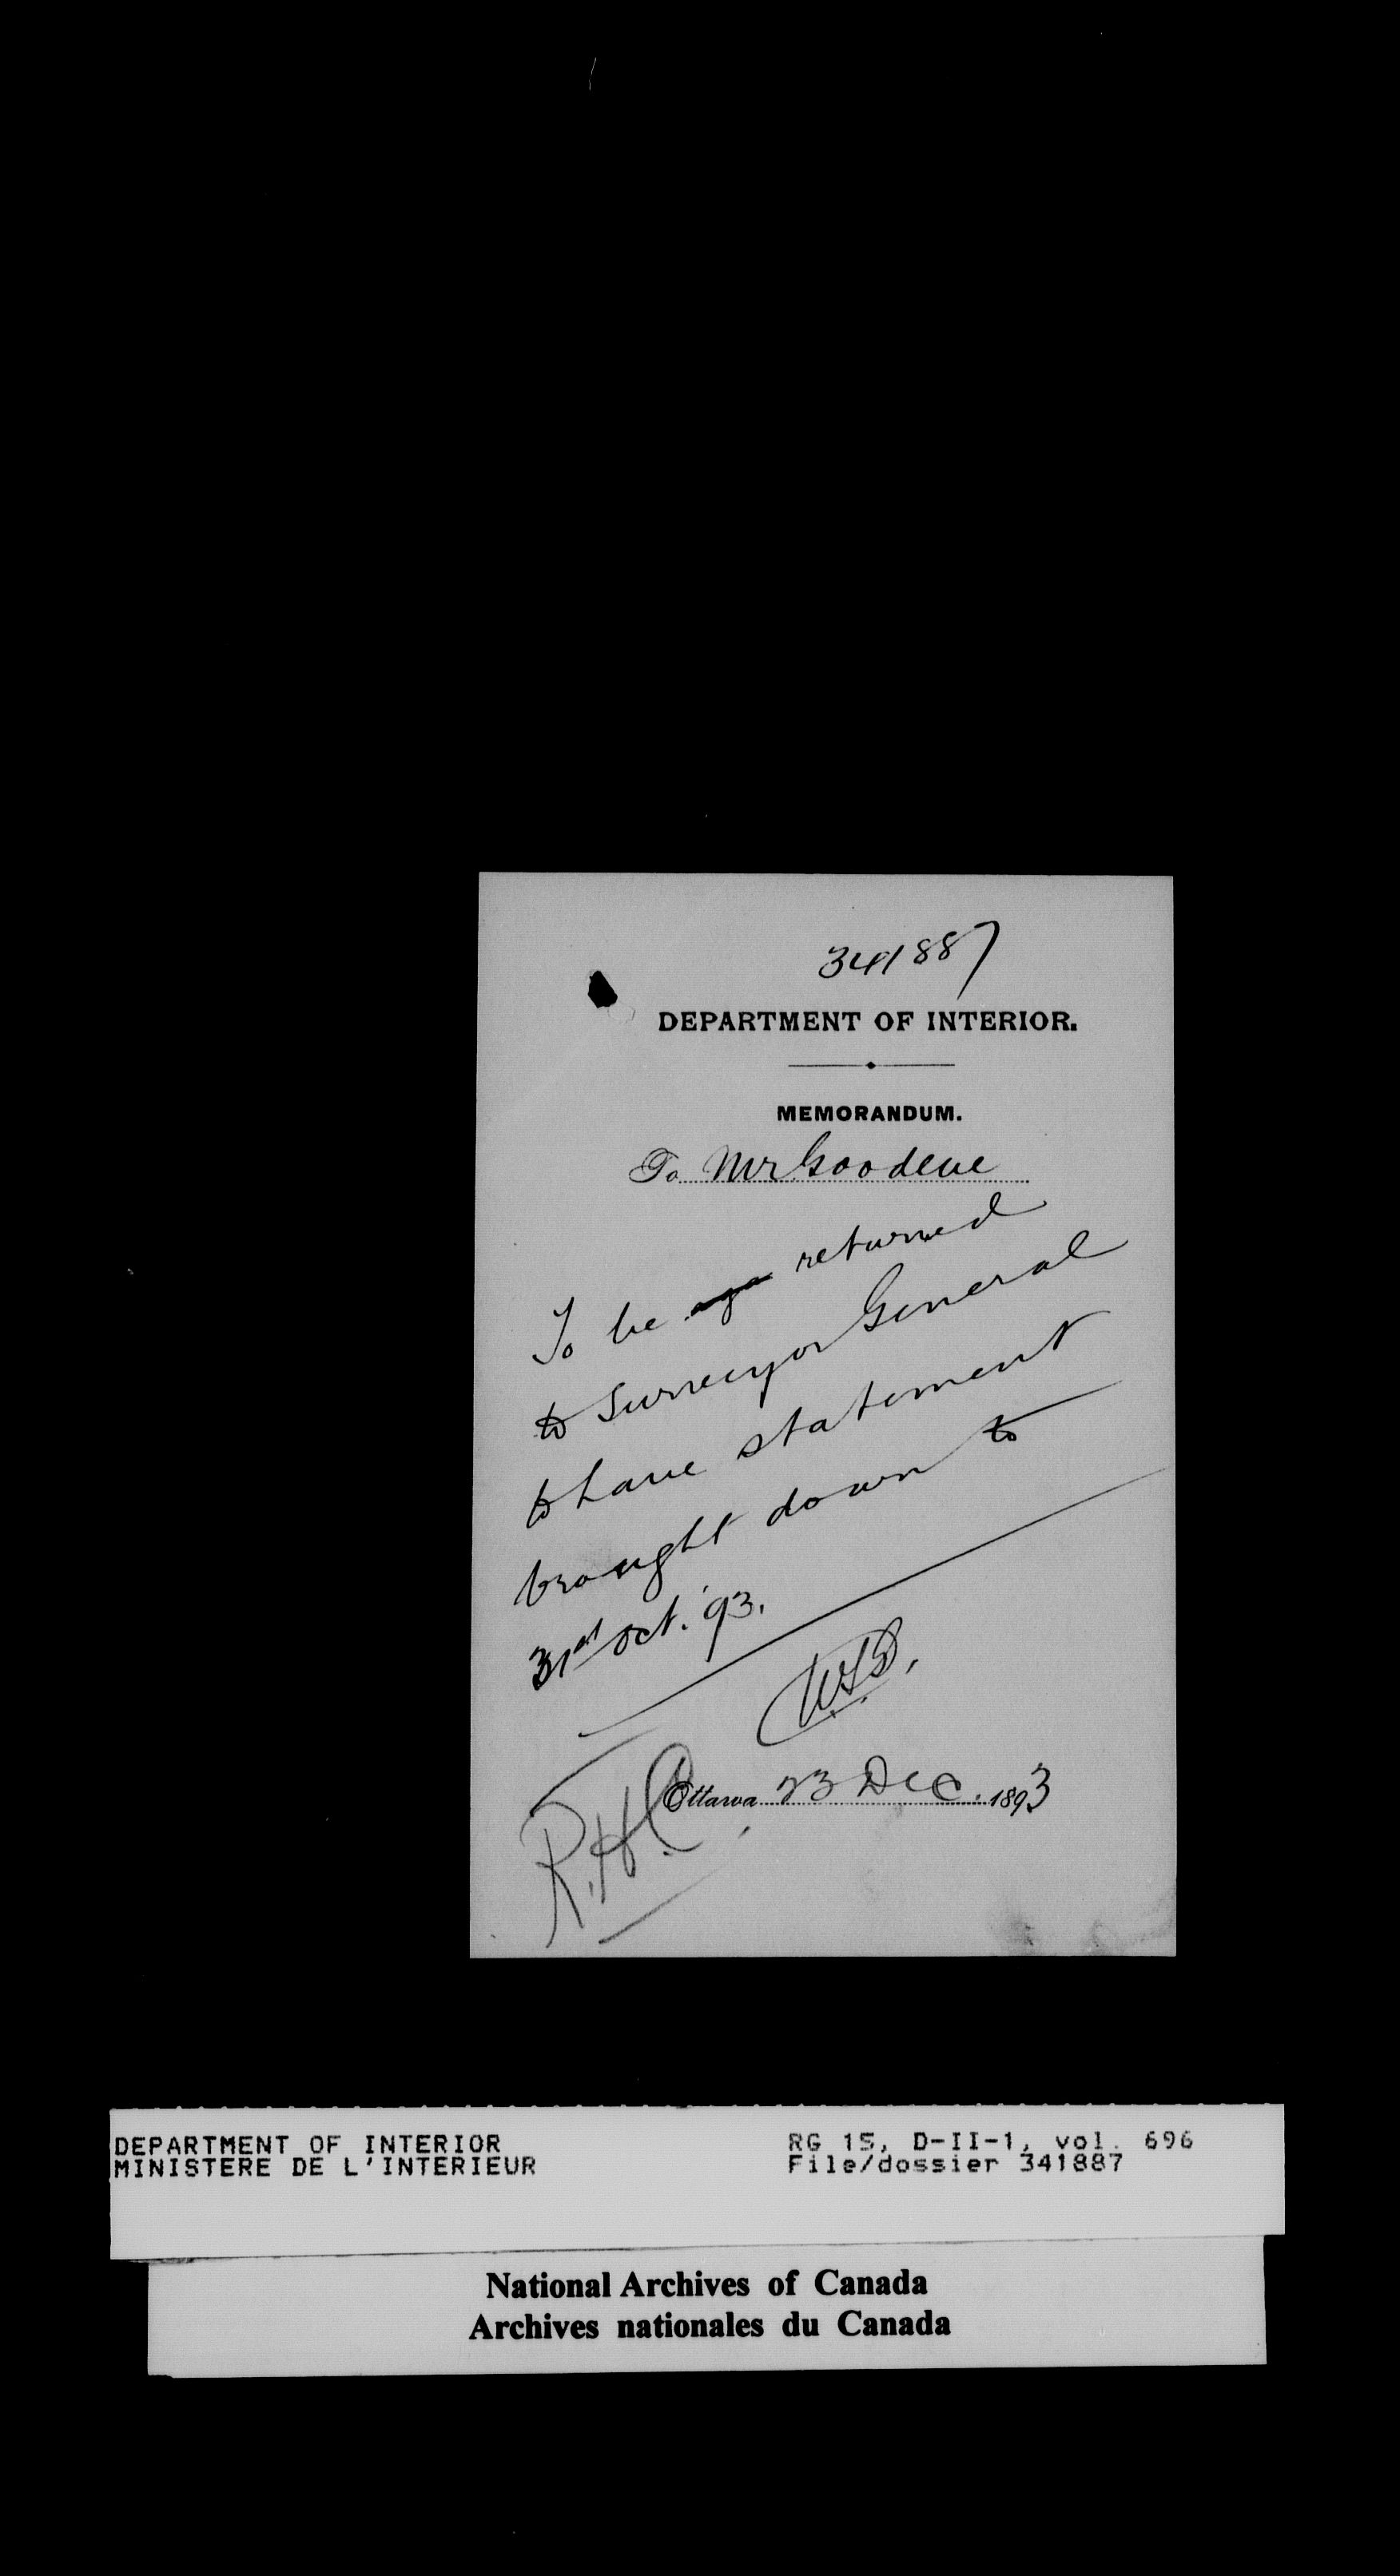 341887
DEPARTMENT OF INTERIOR.
MEMORANDUM.
To Mr Goodeve
To be returned
to Surveyor General
to have statement
brought down to
31st Oct. '93.
Ottawa 23 Dec. 1893
R.H.C.
DEPARTMENT OF INTERIOR
MINISTERE DE L'INTERIEUR
RG 15, D-II-1, vol. 696
File/dossier 341887
National Archives of Canada
Archives nationales du Canada